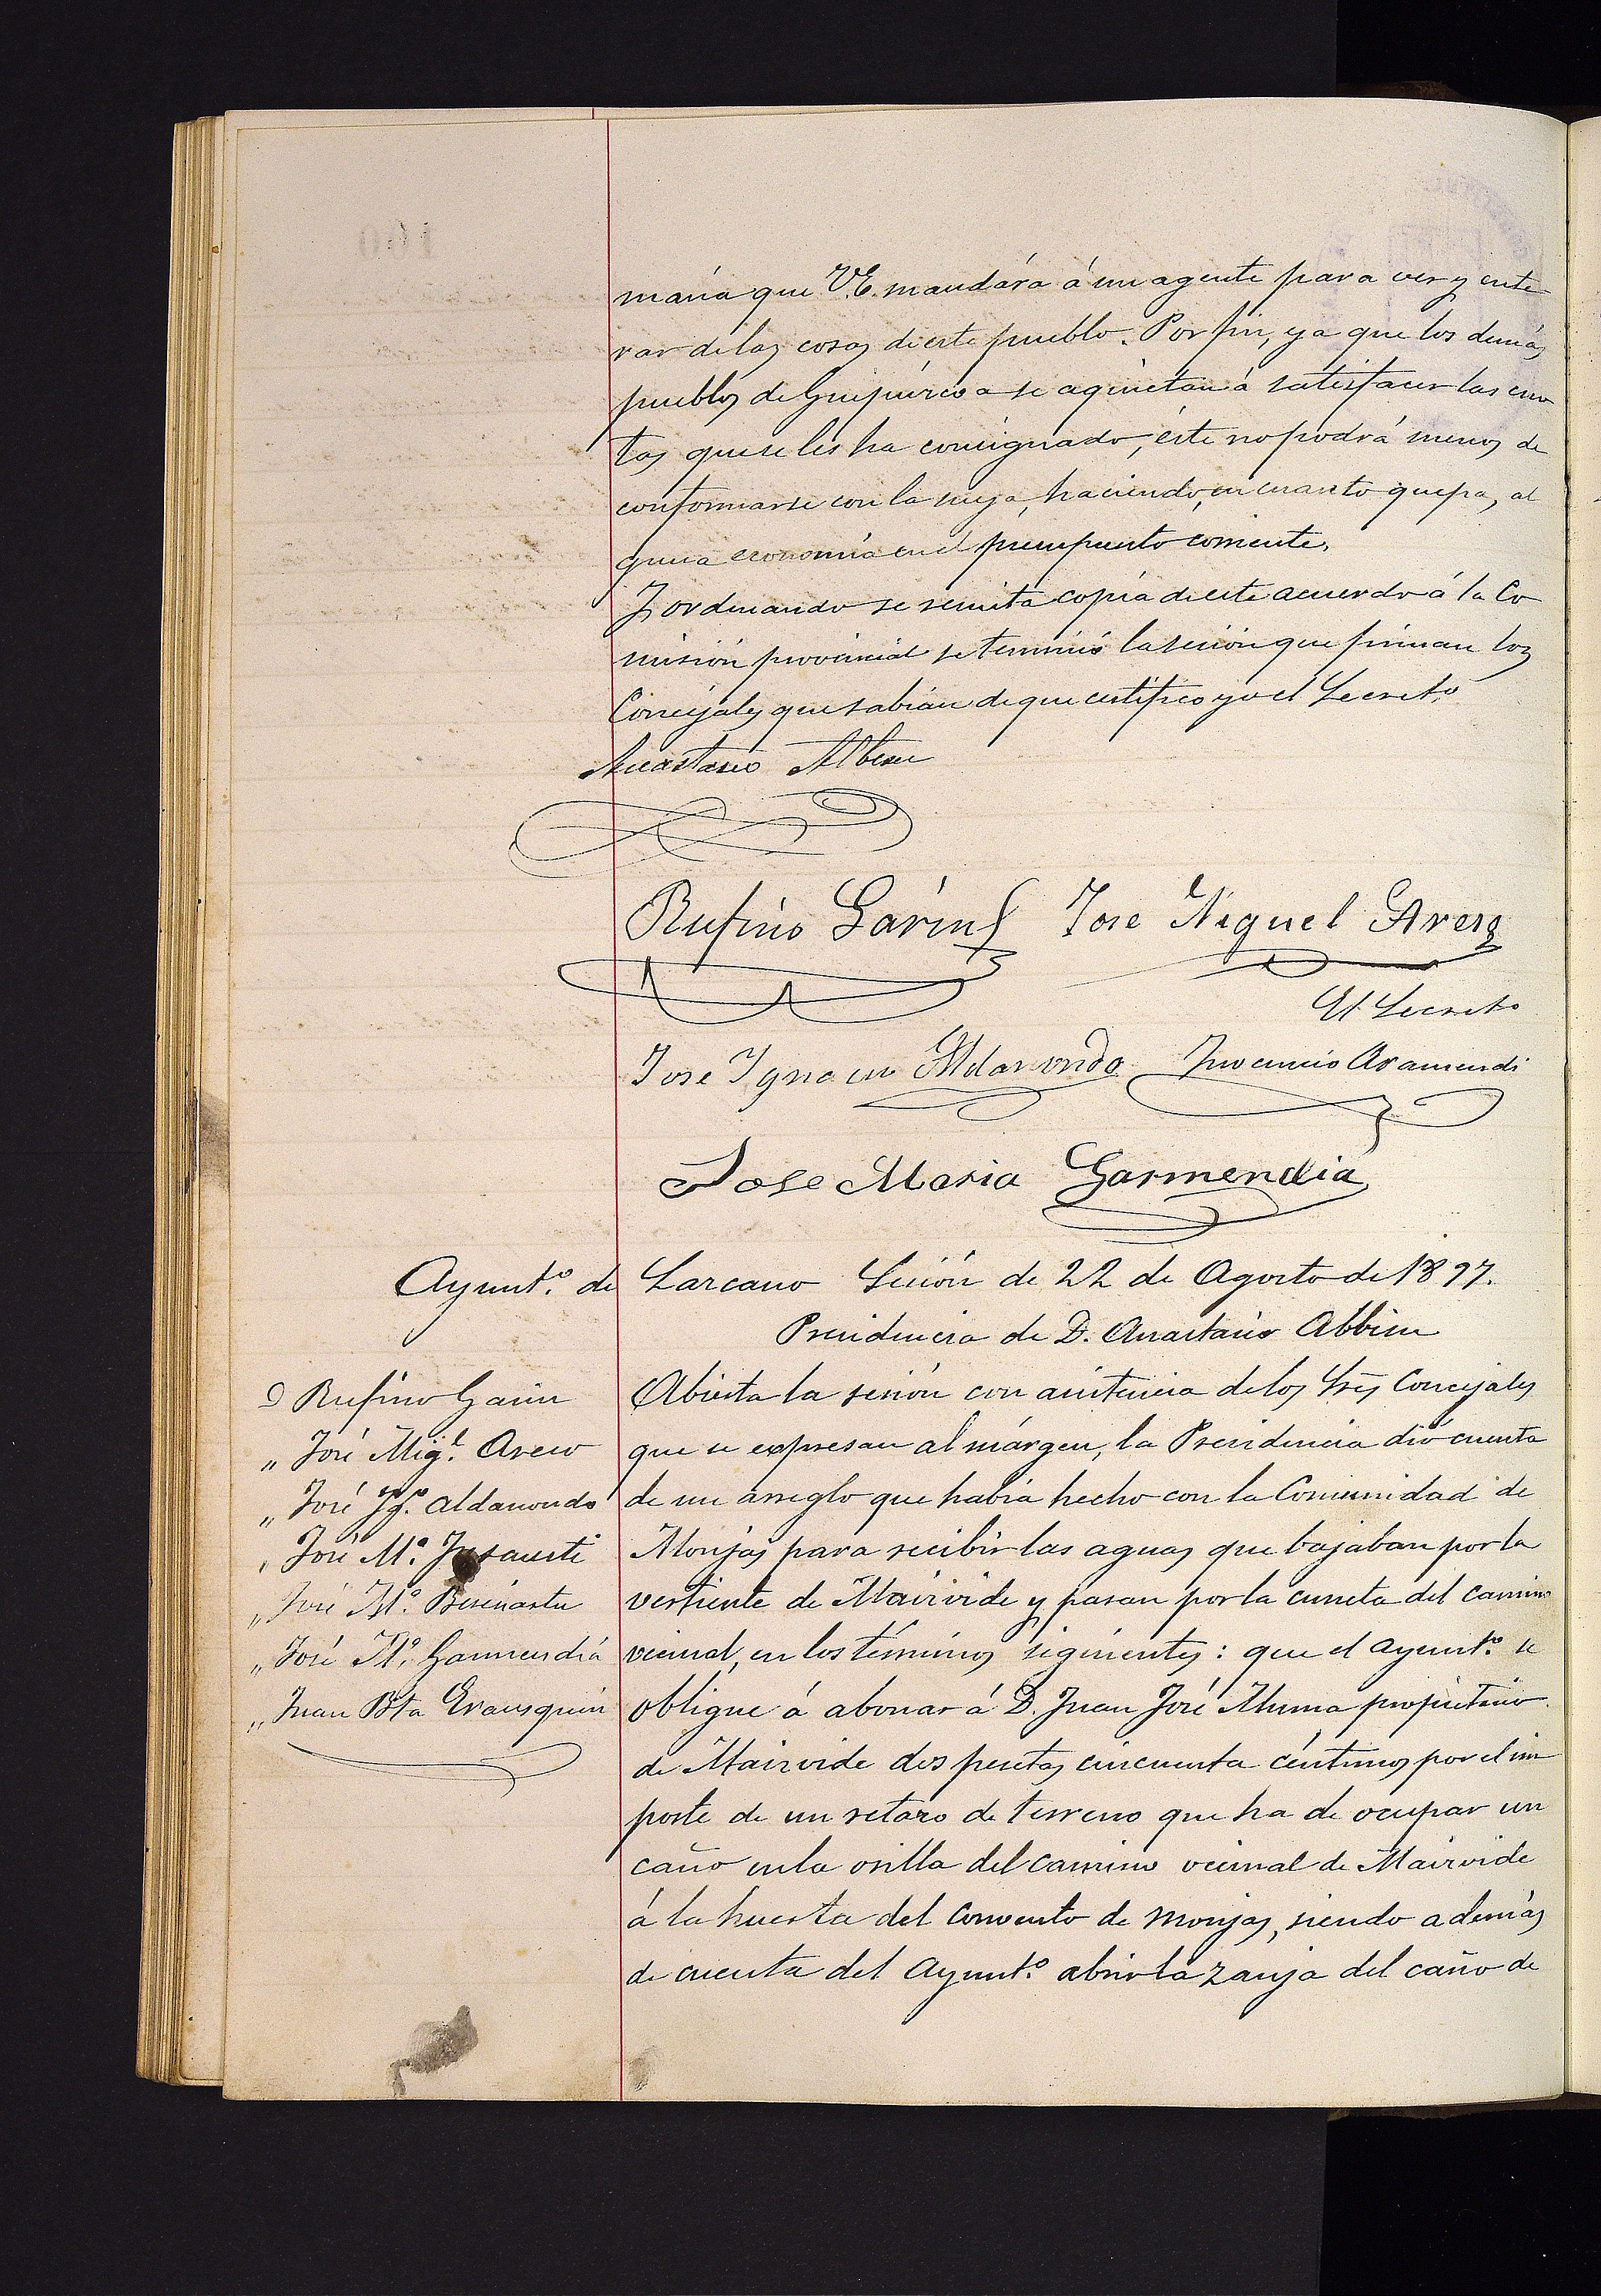 maría que V.E. mandára á un agente para ver y ente
rar de las cosas de este pueblo. Por fin, ya que los demás
pueblos de Guipúzcoa se aquietan á satisfacer las cuo
tas que se les ha consignado, éste no podrá menos de
conformarse con la suya, haciendo, en cuanto quepa, al
guna economía en el presupuesto corriente.
Y ordenando se remita copia de este acuerdo á la Co
misión provincial se terminó la sesión que firman los
Concejales que sabían de que certifico yo el Secretº
Anastasio Albisu
Rufino Garin Jose Miguel
El Secretº
Jose Ignacio Aldanondo Inocencio Aramendi
Jose Maria Garmendia
Ayuntº. de Lazcano Sesión de 22 de Agosto de 1897.
Presidencia de D. Anastasio Albisu
D Rufino Garin
„ José Migl.
„ José Ygº. Aldanondo
„ José Mª.
„ José Mª.
„ José Mª. Garmendia
„ Juan Bta Erausquin
Abierta la sesión con asistencia de los Sres Concejales
que se expresan al márgen, la Presidencia dió cuenta
de un arreglo que habia hecho con la Comunidad de
Monjas para recibir las aguas que bajaban por la
vertiente de Mairoide y pasan por la cuneta del camino
vecinal, en los términos siguientes: que el Ayuntº. se
obligue á abonar á D. Juan José propietario
de Mairoide dos pesetas cincuenta céntimos por el im
porte de un retazo de terreno que ha de ocupar un
caño en la orilla del camino vecinal de Mairoide
á la huerta del Convento de Monjas, siendo además
de cuenta del Ayuntº. abrir la zanja del caño de